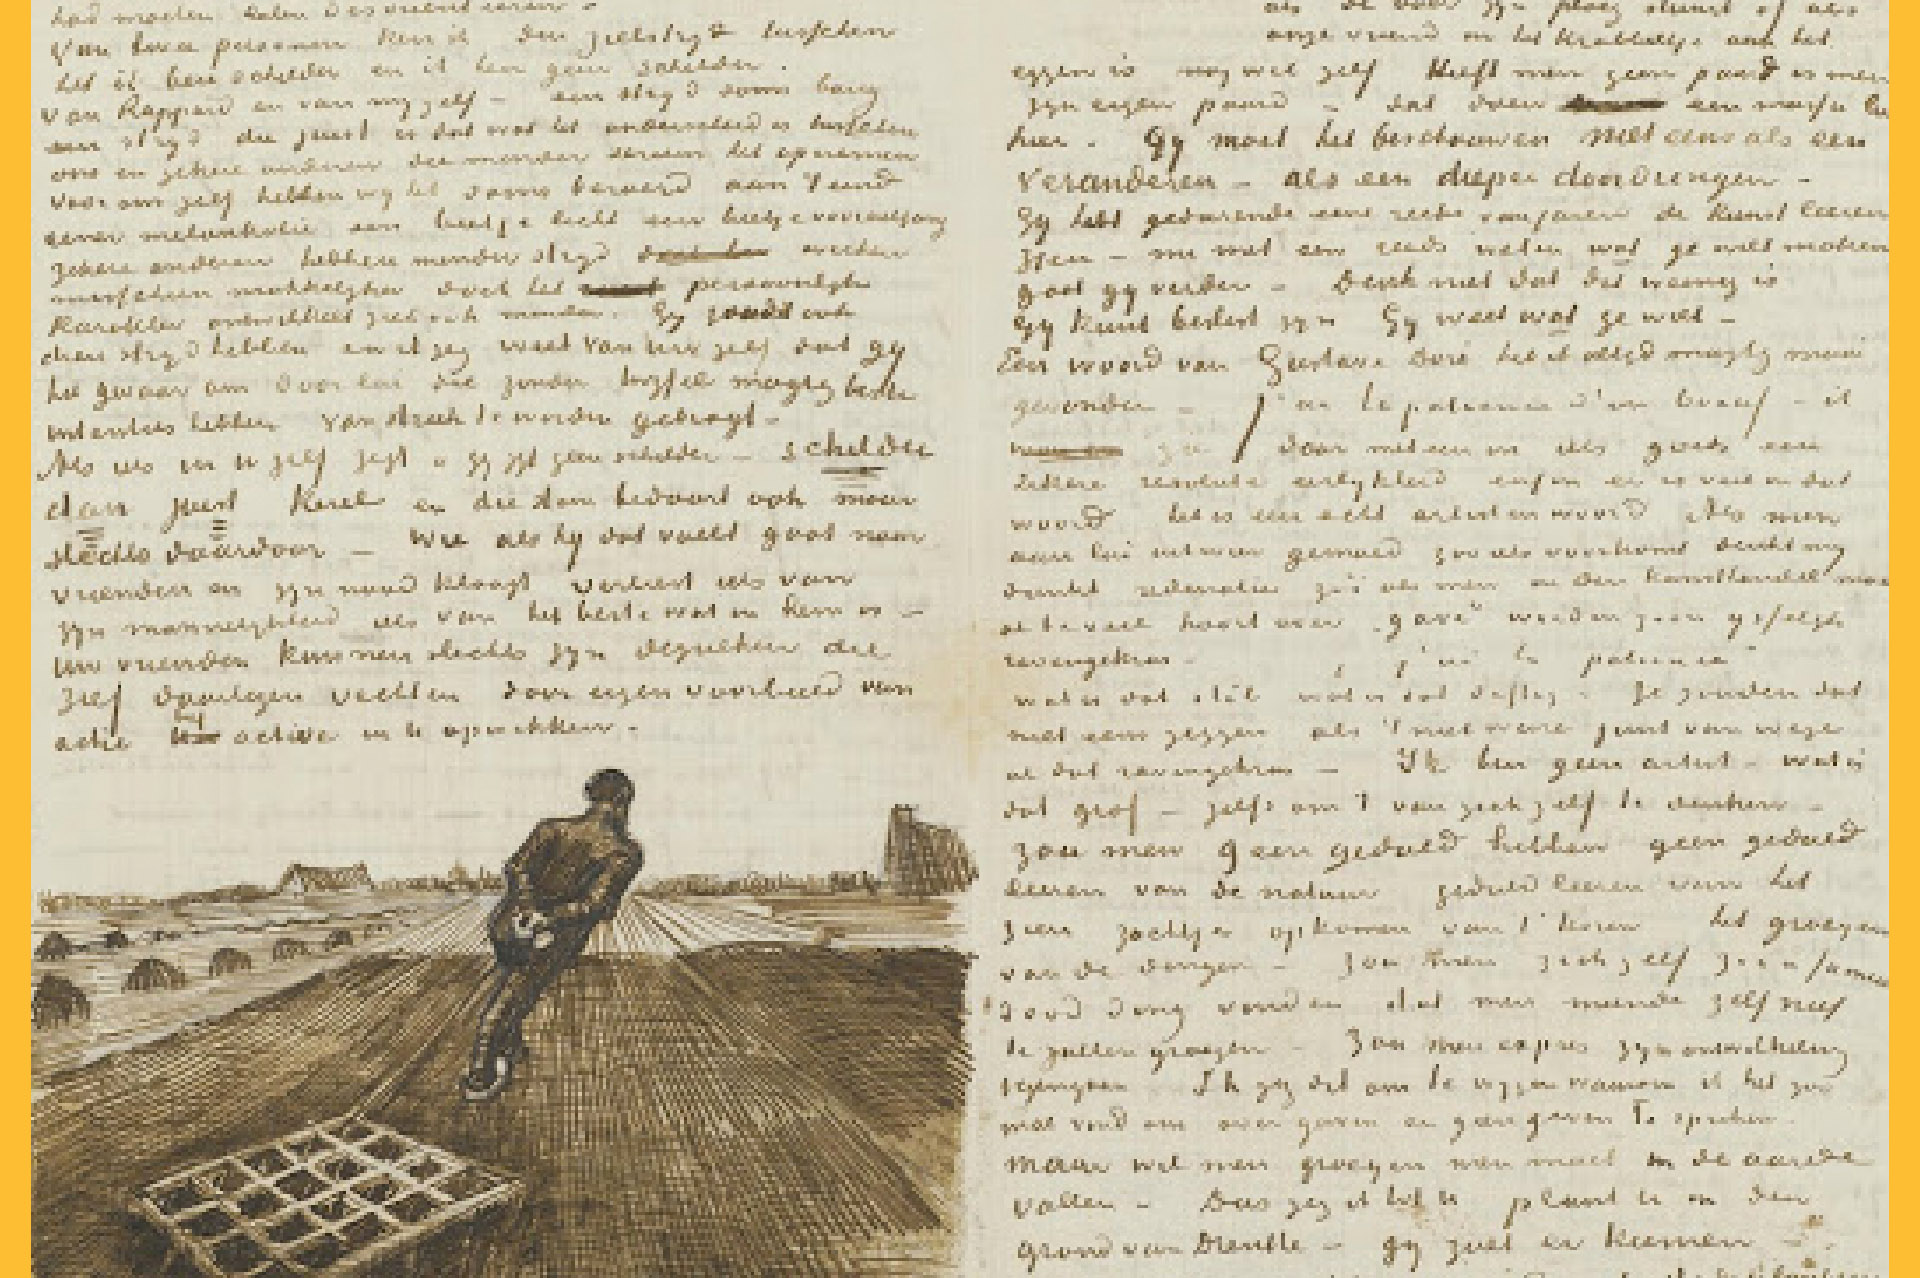 had moeten
Van twee personen ken ik den zielstrijd tusschen
het ik ben schilder en ik ben geen schilder.
Van Rappard en van mij zelf – een strijd soms bang
een strijd die juist is dat wat het onderscheid is tusschen
ons en zekere anderen die minder serieus het opnemen
voor ons zelf hebben wij het soms beroerd aan 't eind
eener melankolie een beetje licht een beetje vooruitgang
zekere anderen hebben minder strijd werken
misschien makkelijker doch het persoonlijk
karakter ontwikkelt zich ook minder. Gij zoudt ook
dien strijd hebben en ik zeg weet van uw zelf dat gij
het gevaar om door lui die zonder twijfel magtig beste
intenties hebben van streek te worden gebragt –
Als iets in U zelf zegt „gij zijt geen schilder – schilder
dan juist Kerel en die stem bedaart ook maar
slechts daardoor – Wie als hij dat voelt gaat naar
vrienden en zijn nood klaagt verliest iets van
zijn mannelijkheid iets van het beste wat in hem is –
Uw vrienden kunnen slechts zijn degenen die
zelf daartegen vechten door eigen voorbeeld van
actie hij active in U opwekken.
als de boer zijn ploeg stuurt of als
onze vriend in het krabbeltje aan het
eggen is nog wel zelf Heeft men geen paard is men
zijn eigen paard – dat doen een massa lui
hier. Gij moet het beschouwen niet eens als een
veranderen – als een dieper doordringen –
Gij hebt gedurende eene reeks van jaren de kunst leeren
zien – nu met een reeds weten wat ge wilt maken
gaat gij verder – Denk niet dat dit weinig is
Gij kunt beslist zijn Gij weet wat ge wilt –
Een woord van Gustave Doré heb ik altijd magtig mooi
gevonden – J'ai la patience d'un boeuf – ik
zie daar meteen in iets goeds een
zekere resolute eerlijkheid enfin er is veel in dat
woord het is een echt artisten woord Als men
aan lui uit wier gemoed zoo iets voorkomt denkt mij
dunkt redenaties zoo als men in den kunsthandel maar
al te veel hoort over „gave" worden zoon ijsselijk
ravengekras – „j'ai la patience"
wat is dat stil wat is dat deftig – Je zouden dat
niet eens zeggen als 't niet ware juist van wege
al dat ravengekras – Ik ben geen artist – wat is
dat grof – zelfs om 't van zich zelf te denken –
zou men geen geduld hebben geen geduld
leeren van de natuur geduld leeren van het
zien zachtjes opkomen van 't koren het groeijen
van de dingen – zou men zich zelf zoo'n famous
dood ding vinden dat men meende zelf niet
te zullen groeijen – Zou men expres zijn ontwikkeling
tegengaan – Ik zeg dit om te wijzen waarom ik het zoo
mal vind om over gaven en geen gaven te spreken.
Maar wil men groeijen men moet in de aarde
vallen – Dus zeg ik tot U plant U in den
grond van Drenthe – gij zult er kiemen –